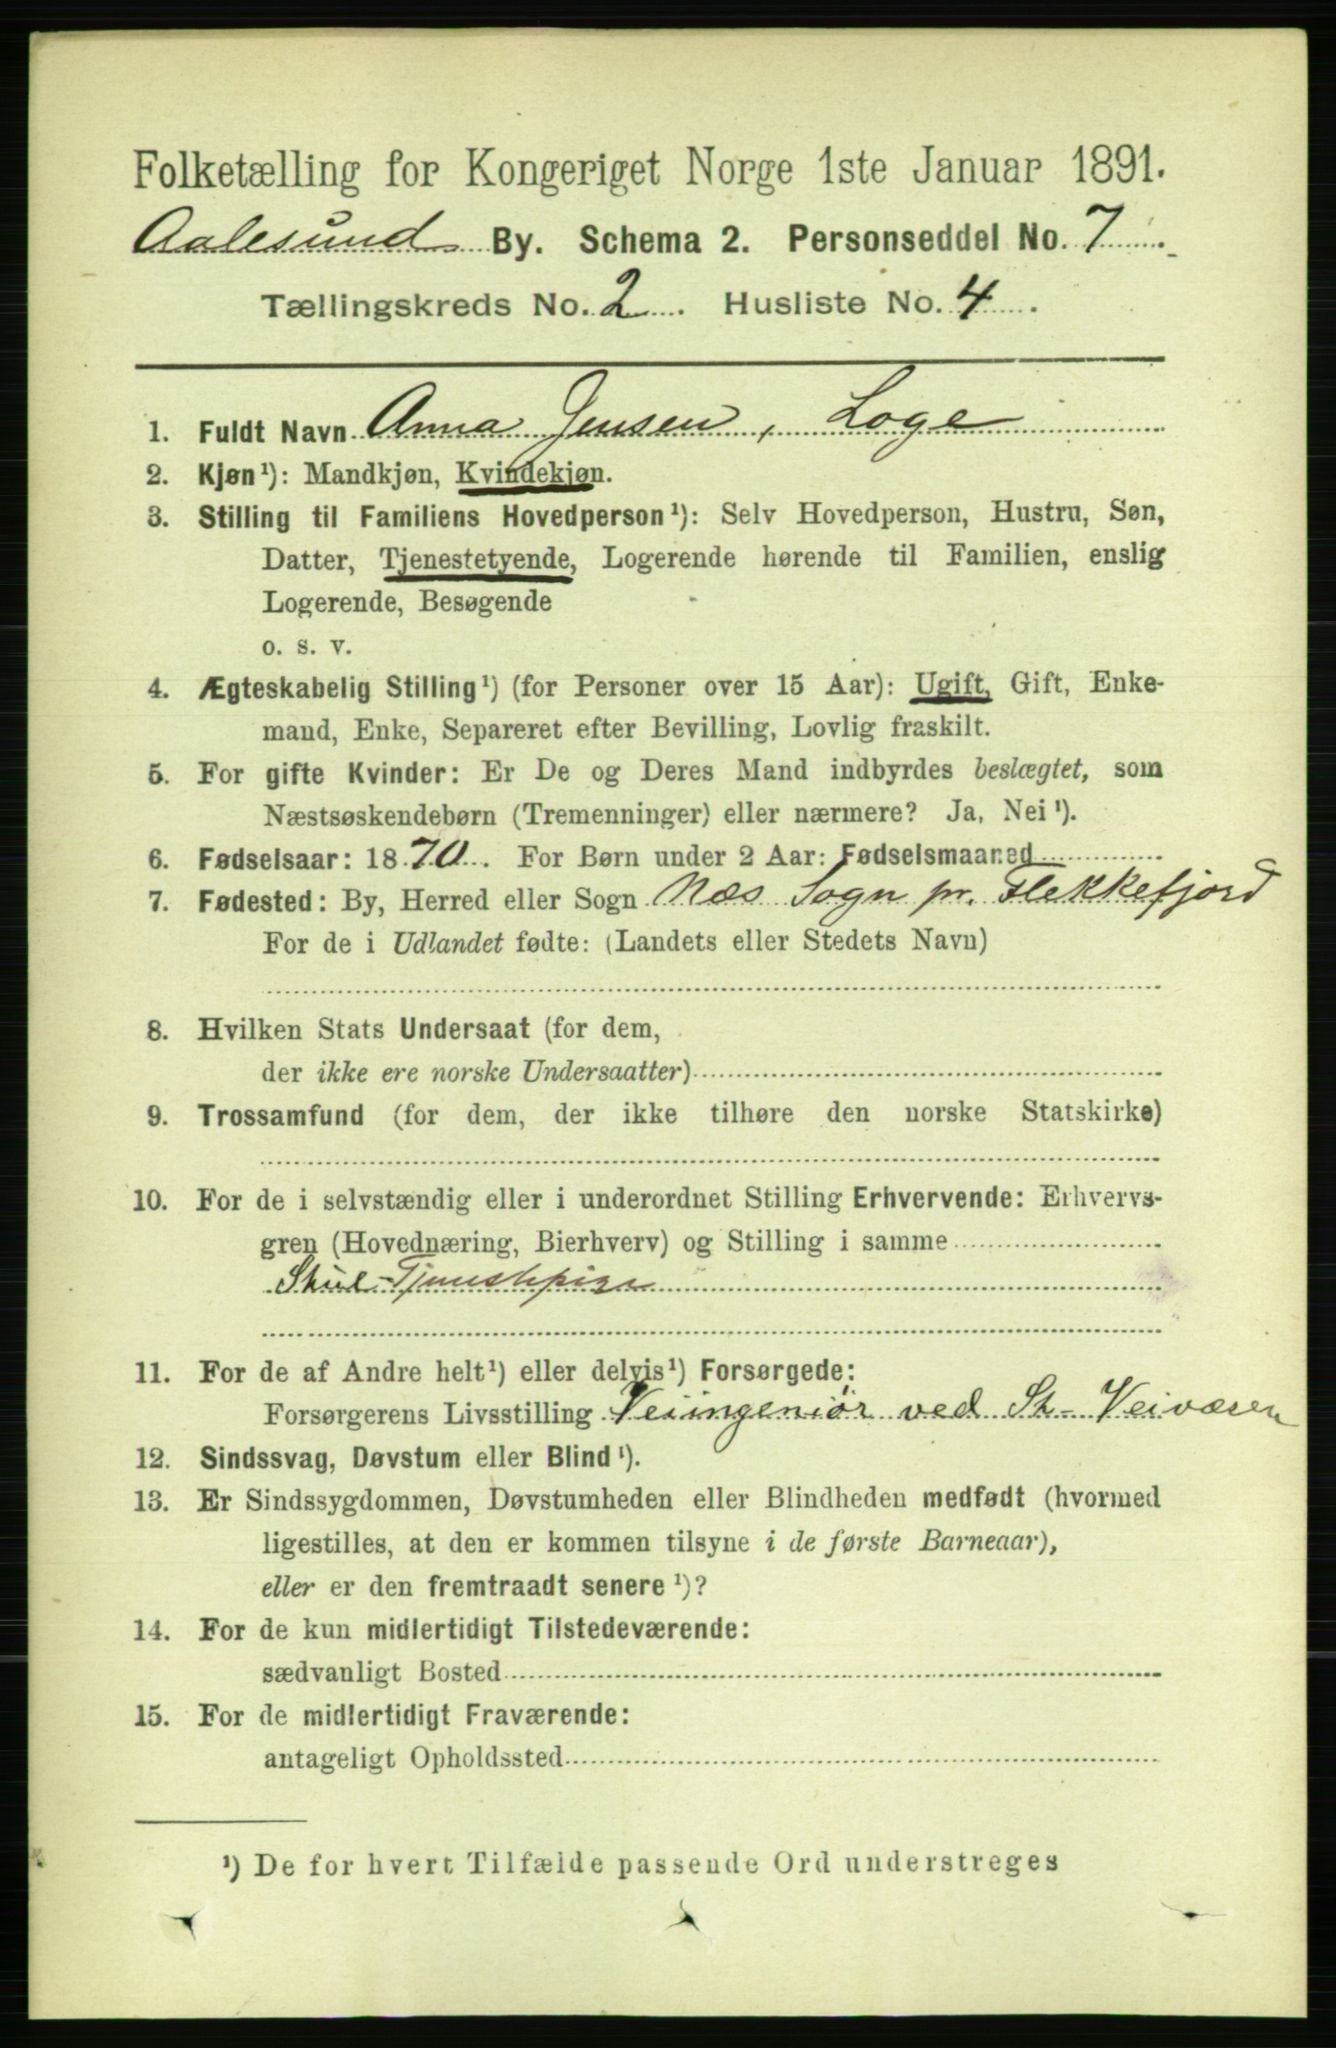 Folketælling for Kongeriget Norge 1ste Januar 1891.
Aalesund By. Schema 2. Personseddel No. 7
Tællingskreds No. 2. Husliste No. 4.
1. Fuldt Navn Anna Jensen, Loge
2. Kjøn¹): Mandkjøn, Kvindekjøn.
3. Stilling til Familiens Hovedperson¹): Selv Hovedperson, Hustru, Søn,
Datter, Tjenestetyende, Logerende hørende til Familien, enslig
Logerende, Besøgende
o. s. v.
4. Ægteskabelig Stilling¹) (for Personer over 15 Aar): Ugift, Gift, Enke-
mand, Enke, Separeret efter Bevilling, Lovlig fraskilt.
5. For gifte Kvinder: Er De og Deres Mand indbyrdes beslægtet, som
Næstsøskendebørn (Tremenninger) eller nærmere? Ja, Nei¹).
6. Fødselsaar: 1870. For Børn under 2 Aar: Fødselsmaaned
7. Fødested: By, Herred eller Sogn Næs Sogn pr. Flekkefjord
For de i Udlandet fødte: (Landets eller Stedets Navn)
8. Hvilken Stats Undersaat (for dem,
der ikke ere norske Undersaatter)
9. Trossamfund (for dem, der ikke tilhøre den norske Statskirke)
10. For de i selvstændig eller i underordnet Stilling Erhvervende: Erhvervs-
gren (Hovednæring, Bierhverv) og Stilling i samme
Tjenestepige
11. For de af Andre helt¹) eller delvis¹) Forsørgede:
Forsørgerens Livsstilling Veiingeniør ved St. Veivæsen
12. Sindssvag, Døvstum eller Blind¹).
13. Er Sindssygdommen, Døvstumheden eller Blindheden medfødt (hvormed
ligestilles, at den er kommen tilsyne i de første Barneaar),
eller er den fremtraadt senere¹)?
14. For de kun midlertidigt Tilstedeværende:
sædvanligt Bosted
15. For de midlertidigt Fraværende:
antageligt Opholdssted
¹) De for hvert Tilfælde passende Ord understreges